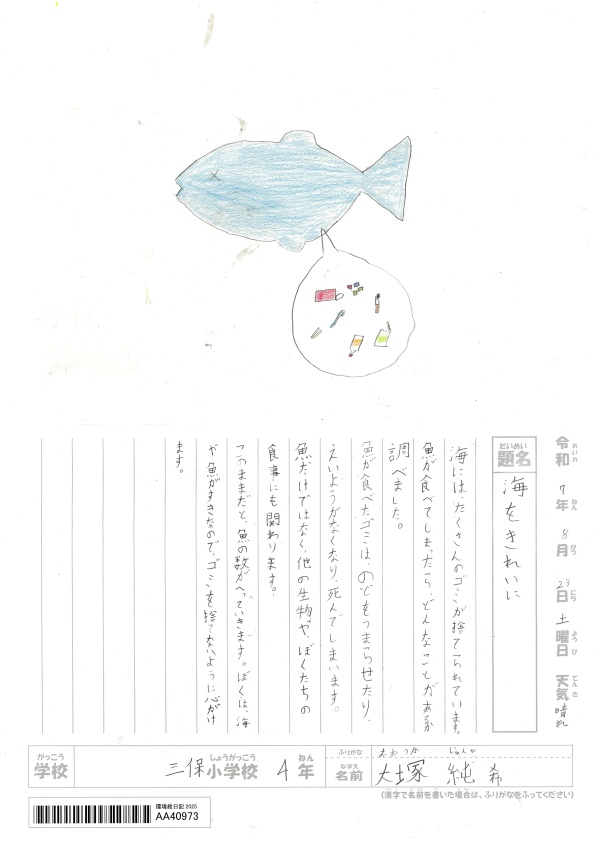 令和 7年 8月 23日 土曜日 天気 晴れ
題名 海をきれいに
海には、たくさんのゴミが捨てられています。
魚が食べてしまったら、どんなことがあるか
調べました。
魚が食べたゴミは、のどをつまらせたり、
えいようがなくなり、死んでしまいます。
魚だけではなく、他の生物や、ぼくたちの
食事にも関わります。
このままだと、魚の数がへっていきます。ぼくは、海
や魚がすきなので、ゴミを捨てないように心がけ
ます。
がっこう しょうがっこう ねん
学校 三保小学校 4年
ふりがな おおつか じゅんき
なまえ
名前 大塚 純希
(漢字で名前を書いた場合は、ふりがなをふってください)
環境絵日記 2025
AA40973